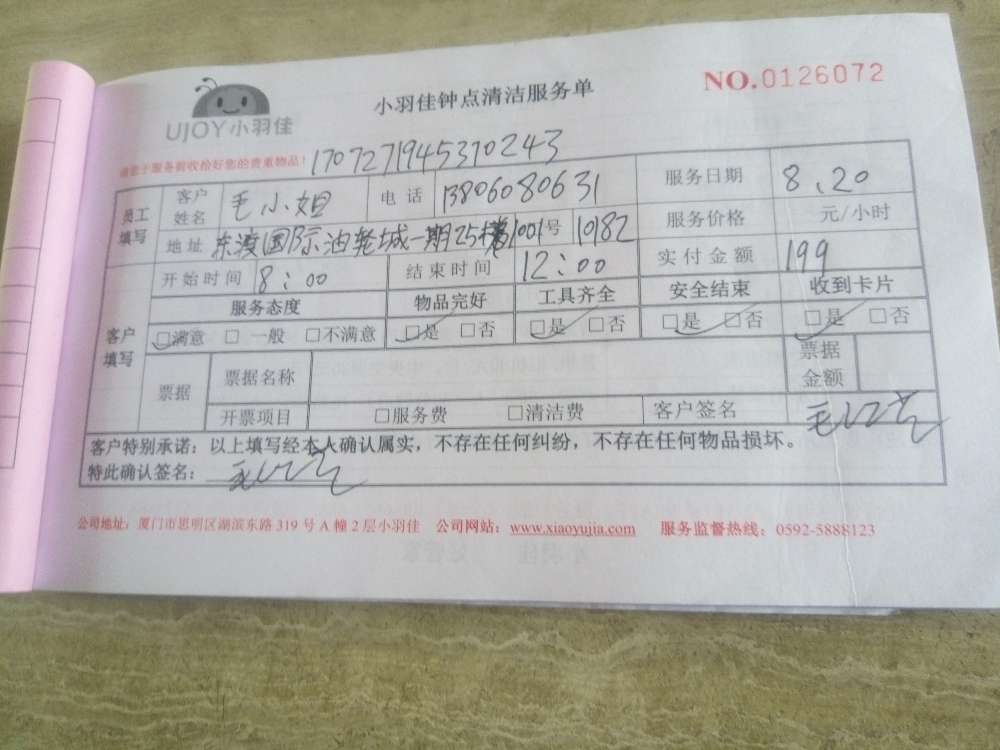 UJOY小羽佳
小羽佳钟点清洁服务单
NO.0126072
1707271945370243
员工填写 客户姓名 毛小姐 电话 13806080631 服务日期 8.20
地址 东渡国际油轮城一期25楼1001号 10182 服务价格 元/小时
开始时间 8:00 结束时间 12:00 实付金额 199
客户填写 服务态度 物品完好 工具齐全 安全结束 收到卡片
□满意 □一般 □不满意 □是 □否 □是 □否 □是 □否 □是 □否
票据 票据名称 票据金额
开票项目 □服务费 □清洁费 客户签名
客户特别承诺：以上填写经本人确认属实，不存在任何纠纷，不存在任何物品损坏。
特此确认签名：
公司地址：厦门市思明区湖滨东路319号A幢2层小羽佳 公司网站：www.xiaoyujia.com 服务监督热线：0592-5888123